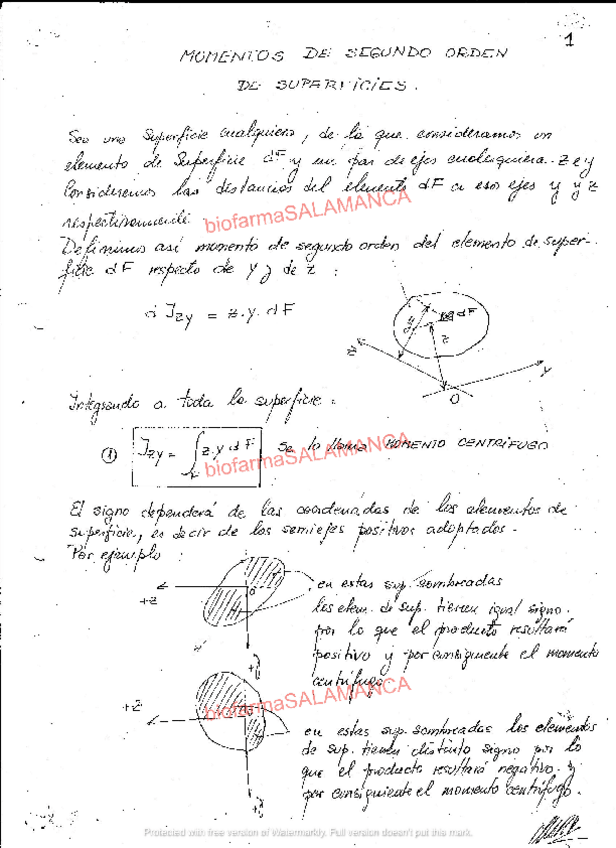 1
MOMENTOS DE SEGUNDO ORDEN
DE SUPERFICIES.
Sea una Superficie cualquiera, de la que consideramos un
elemento de Superficie dF y un par de ejes cualesquiera z e y
Consideremos las distancias del elemento dF a esos ejes y y z
respectivamente.
biofarmaSALAMANCA
Definimos así momento de segundo orden del elemento de super-
ficie dF respecto de y y de z :
d Jzy = z.y.dF
dF
y
z
z
y
O
Integrando a toda la superficie :
① Jzy = ∫F z.y dF Se lo llama MOMENTO CENTRÍFUGO
biofarmaSALAMANCA
El signo dependerá de las coordenadas de los elementos de
superficie, es decir de los semiejes positivos adoptados.
Por ejemplo :
+z
O
+y
en estas sup. sombreadas
los elem. de sup. tienen igual signo.
por lo que el producto resultará
positivo y por consiguiente el momento
centrífugo
biofarmaSALAMANCA
+z
+y
en estas sup. sombreadas los elementos
de sup. tienen distinto signo por lo
que el producto resultará negativo. y
por consiguiente el momento centrífugo.
Protected with free version of Watermarkly. Full version doesn't put this mark.